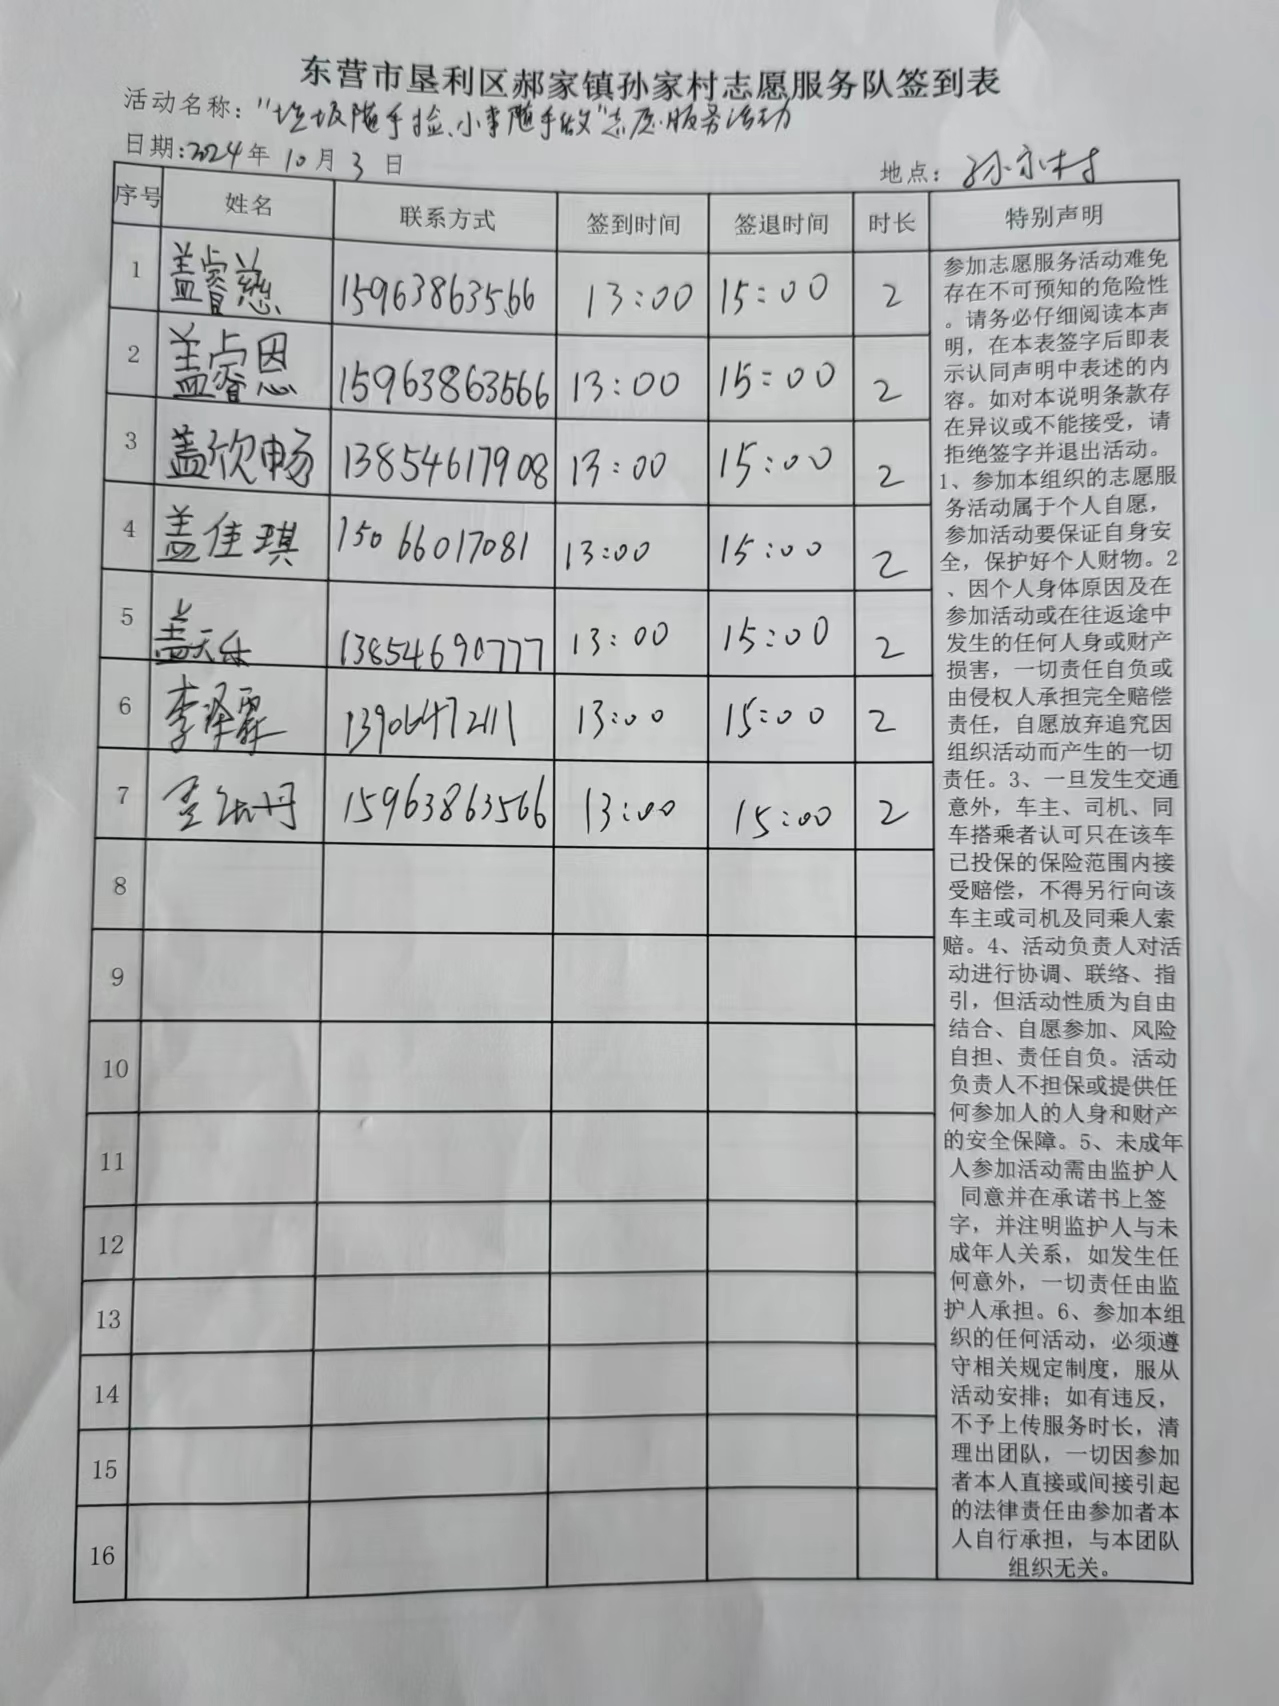 东营市垦利区郝家镇孙家村志愿服务队签到表
活动名称："垃圾随手捡、小事随手做"志愿服务活动
日期:2024年10月3日 地点:孙家村
序号 姓名 联系方式 签到时间 签退时间 时长 特别声明
1 盖睿慈 15963863566 13:00 15:00 2
2 盖睿恩 15963863566 13:00 15:00 2
3 盖欣畅 13854617908 13:00 15:00 2
4 盖佳琪 15066017081 13:00 15:00 2
5 盖天乐 13854690777 13:00 15:00 2
6 李泽霖 13906472111 13:00 15:00 2
7 15963863566 13:00 15:00 2
8
9
10
11
12
13
14
15
16
参加志愿服务活动难免
存在不可预知的危险性
。请务必仔细阅读本声
明，在本表签字后即表
示认同声明中表述的内
容。如对本说明条款存
在异议或不能接受，请
拒绝签字并退出活动。
1、参加本组织的志愿服
务活动属于个人自愿，
参加活动要保证自身安
全，保护好个人财物。2
、因个人身体原因及在
参加活动或在往返途中
发生的任何人身或财产
损害，一切责任自负或
由侵权人承担完全赔偿
责任，自愿放弃追究因
组织活动而产生的一切
责任。3、一旦发生交通
意外，车主、司机、同
车搭乘者认可只在该车
已投保的保险范围内接
受赔偿，不得另行向该
车主或司机及同乘人索
赔。4、活动负责人对活
动进行协调、联络、指
引，但活动性质为自由
结合、自愿参加、风险
自担、责任自负。活动
负责人不担保或提供任
何参加人的人身和财产
的安全保障。5、未成年
人参加活动需由监护人
同意并在承诺书上签
字，并注明监护人与未
成年人关系，如发生任
何意外，一切责任由监
护人承担。6、参加本组
织的任何活动，必须遵
守相关规定制度，服从
活动安排；如有违反，
不予上传服务时长，清
理出团队，一切因参加
者本人直接或间接引起
的法律责任由参加者本
人自行承担，与本团队
组织无关。